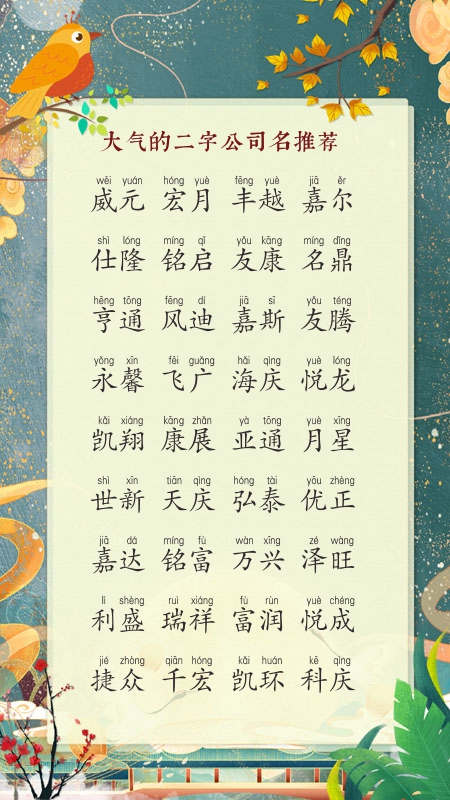 大气的二字公司名推荐
wēi yuán hóng yuè fēng yuè jiā ěr
威元 宏月 丰越 嘉尔
shì lóng míng qǐ yǒu kāng míng dǐng
仕隆 铭启 友康 名鼎
hēng tōng fēng dí jiā sī yǒu téng
亨通 风迪 嘉斯 友腾
yǒng xīn fēi guǎng hǎi qìng yuè lóng
永馨 飞广 海庆 悦龙
kǎi xiáng kāng zhǎn yà tōng yuè xīng
凯翔 康展 亚通 月星
shì xīn tiān qìng hóng tài yōu zhèng
世新 天庆 弘泰 优正
jiā dá míng fù wàn xīng zé wàng
嘉达 铭富 万兴 泽旺
lì shèng ruì xiáng fù rùn yuè chéng
利盛 瑞祥 富润 悦成
jié zhòng qiān hóng kǎi huán kē qìng
捷众 千宏 凯环 科庆